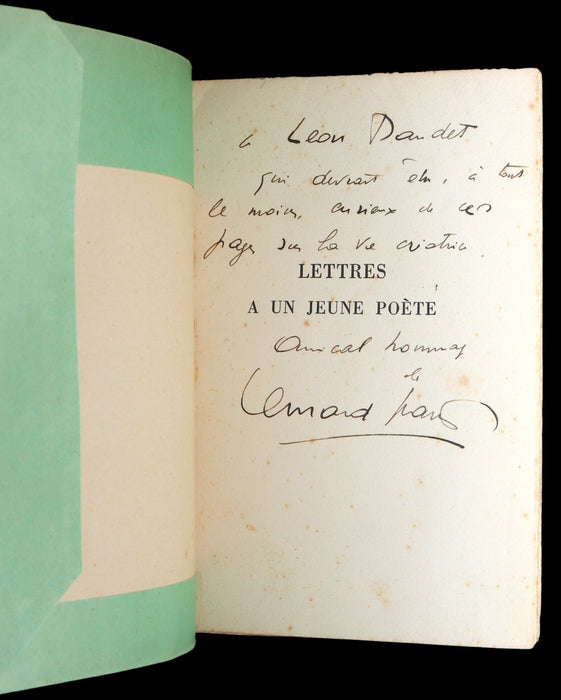 à Léon Daudet
qui devrait être, à tout
le moins, curieux de ces
pages sur la vie créatrice.
LETTRES
A UN JEUNE POÈTE
Amical hommage
de
Bernard Grasset